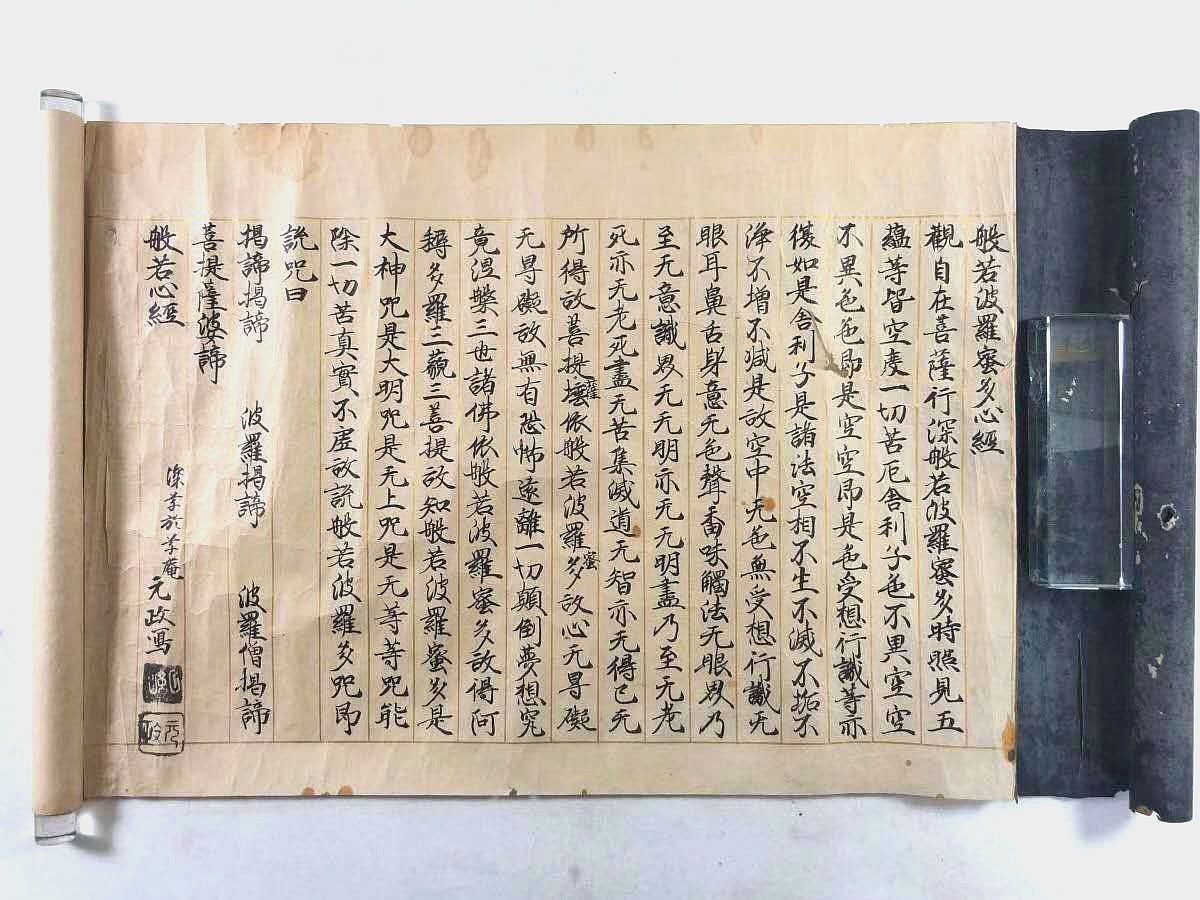 般若波羅蜜多心經
觀自在菩薩行深般若波羅蜜多時照見五
蘊等皆空度一切苦厄舍利子色不異空空
不異色色即是空空即是色受想行識等亦
復如是舍利子是諸法空相不生不滅不垢不
淨不增不減是故空中无色無受想行識无
眼耳鼻舌身意无色聲香味觸法无眼界乃
至无意識界无无明亦无无明盡乃至无老
死亦无老死盡无苦集滅道无智亦无得已无
所得故菩提薩埵依般若波羅蜜多故心无罣礙
无罣礙故無有恐怖遠離一切顛倒夢想究
竟涅槃三世諸佛依般若波羅蜜多故得阿
耨多羅三藐三菩提故知般若波羅蜜多是
大神咒是大明咒是无上咒是无等等咒能
除一切苦真實不虛故說般若波羅多咒即
說咒曰
揭諦揭諦 波羅揭諦 波羅僧揭諦
菩提薩婆諦
般若心經
深草於草庵
元政寫
元政